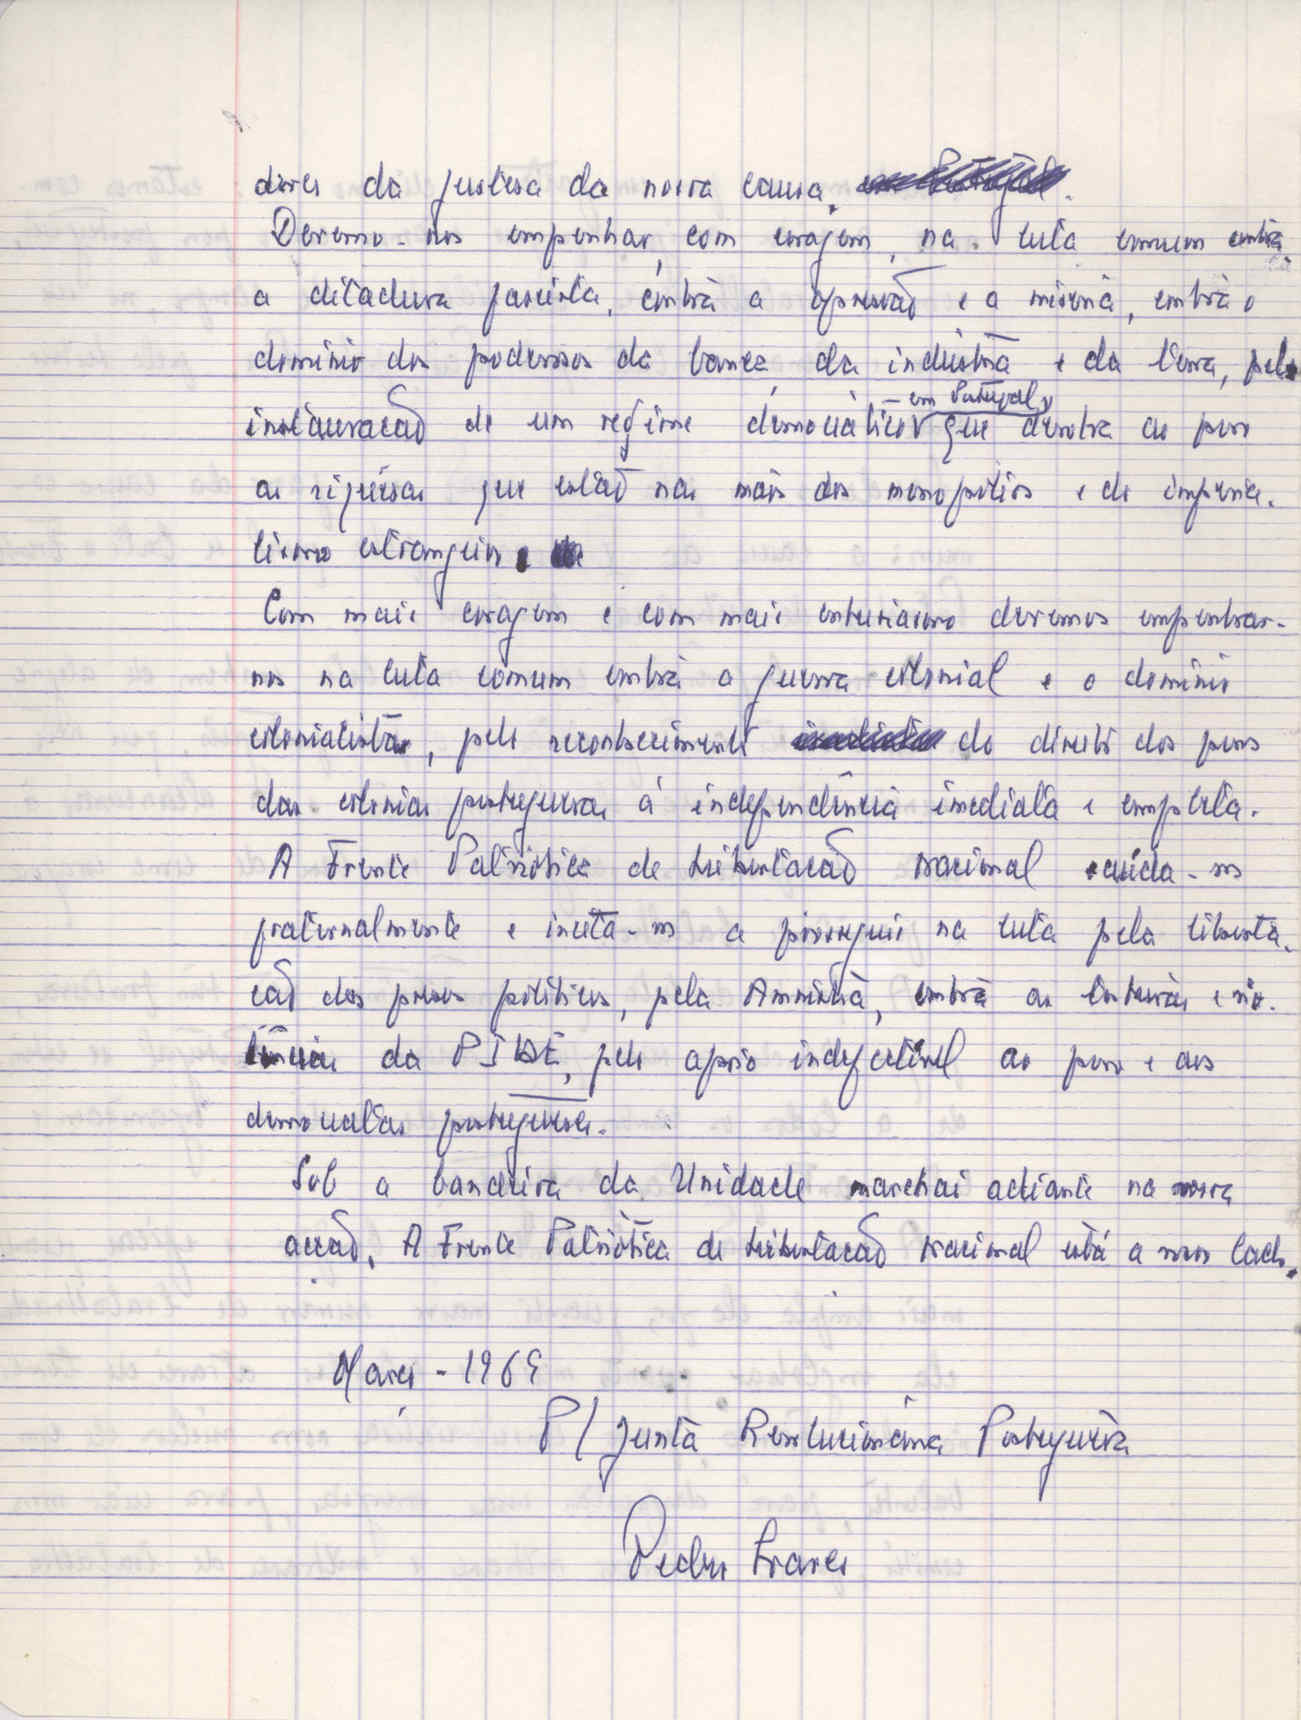 dores da justesa da nossa causa.
Devemo-nos empenhar, com coragem, na luta comum contra
a ditadura fascista, contra a opressão e a miséria, contra o
dominio dos poderosos da banca, da indústria e da terra, pela
instauração de um regime democrático em Portugal que devolva ao povo
as riquesas que estão nas mãos dos monopólios e do imperia-
lismo estrangeiro.
Com mais coragem e com mais entusiasmo devemos empenhar-
nos na luta comum contra a guerra colonial e o dominio
colonialista, pelo reconhecimento do direito dos povos
das colonias portuguesas á independência imediata e completa.
A Frente Patriótica de Libertação Nacional saúda-vos
fraternalmente e incita-vos a prosseguir na luta pela liberta-
ção dos presos politicos, pela Amnistia, contra as torturas e vio-
lências da PIDE, pelo apoio indefectivel ao povo e aos
democratas portugueses.
Sob a bandeira da Unidade marchai adiante na vossa
acção. A Frente Patriótica de Libertação Nacional está a vosso lado.
Março - 1969
P/ Junta Revolucionária Portuguesa
Pedro Soares